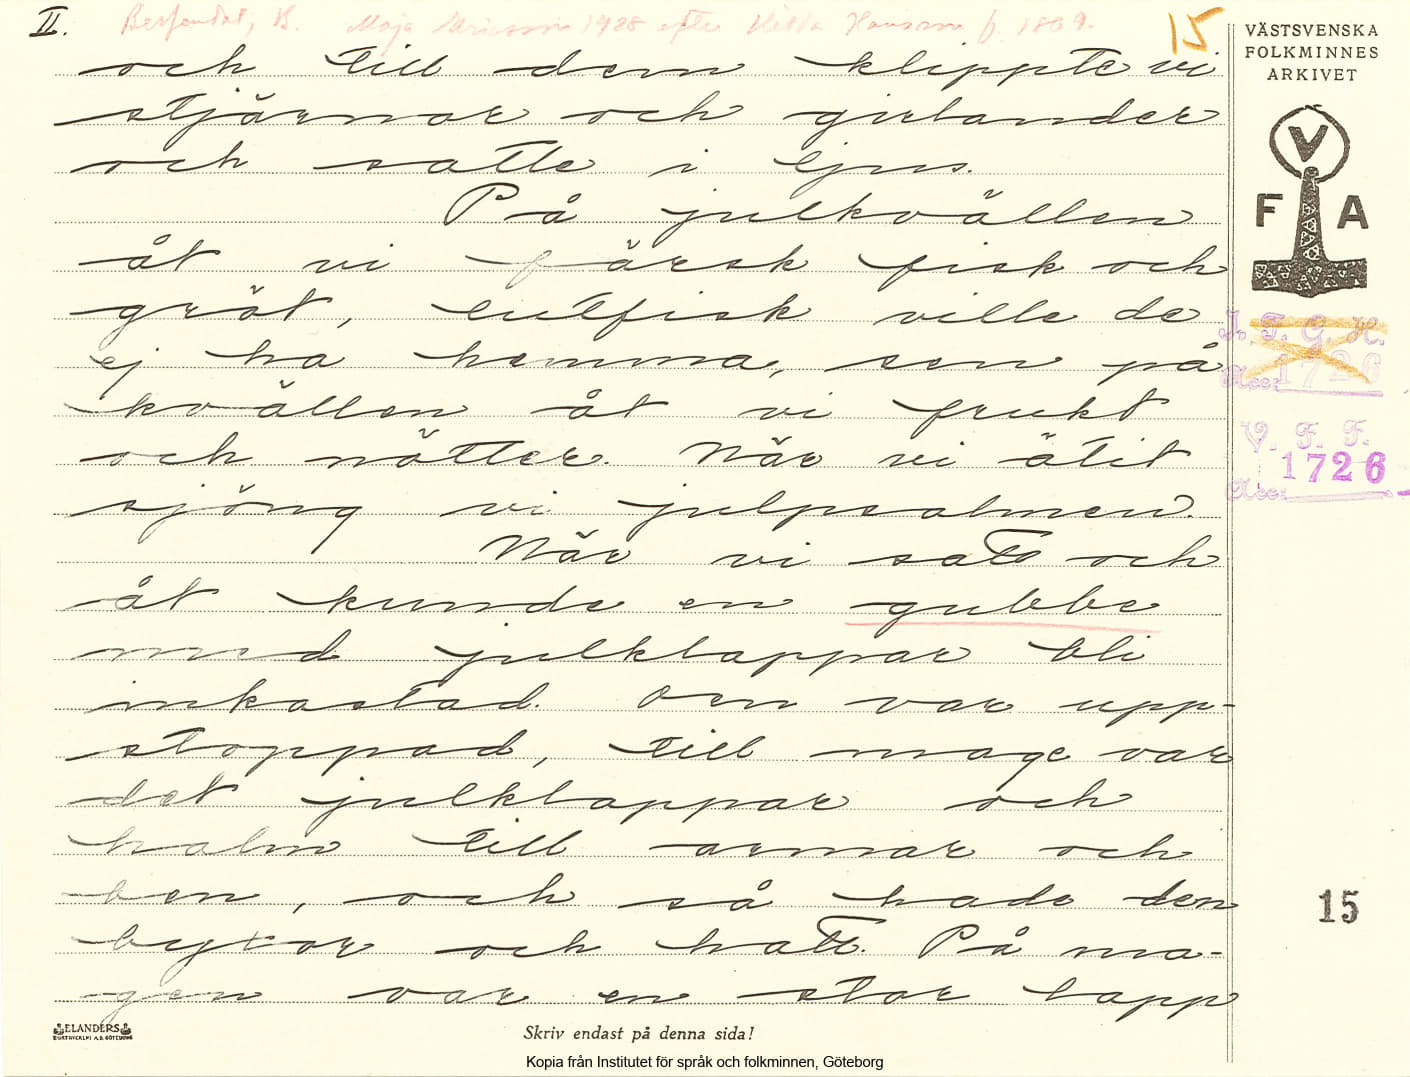 II.
Maja Ericsson 1928 efter Hilda Hansson f. 1869.
15
VÄSTSVENSKA
FOLKMINNES
ARKIVET
V
F A
och till dem klippte vi
stjärnor och girlander
och satte i ljus.
På julkvällen
åt vi färsk fisk och
gröt, lutfisk ville de
ej ha hemma, sen på
kvällen åt vi frukt
och nötter. När vi ätit
sjöng vi julpsalmen.
När vi satt och
åt kunde en gubbe
med julklappar bli
inkastad. Den var upp-
stoppad, till mage var
det julklappar och
halm till armar och
ben, och så hade den
byxor och hatt. På ma-
gen var en stor lapp
I. F. G. H.
Acc: 1726
V. F. F.
1726
Acc:
15
ELANDERS
BOKTRYCKERI A.B. GÖTEBORG
Skriv endast på denna sida!
Kopia från Institutet för språk och folkminnen, Göteborg